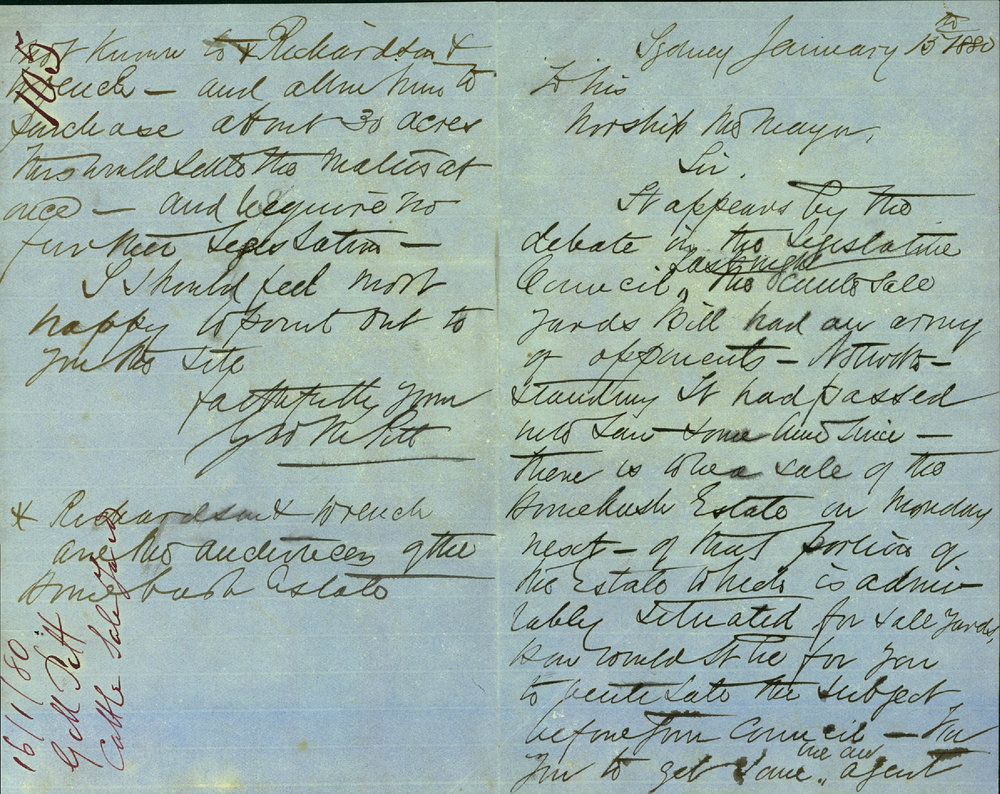 Sydney January 15th 1880
To his
Worship the Mayor,
Sir,
It appears by the
debate in the Legislative
Council, last night the Cattle Sale
Yards Bill had an army
of opponents – Notwith–
standing It had passed
into Law some time since –
there is to be a sale of the
Homebush Estate on Monday
next – of that portion of
the Estate which is admi-
rably situated for sale yards,
How would it be for you
to ventilate the subject
before your Council – For
you to get some one an agent
not known to * Richardson &
Wrench – and allow him to
purchase about 30 acres
this would settle the matter at
once – and require no
further Legislation –
I should feel most
happy to point out to
you the site
faithfully yours
Geo M Pitt
* Richardson & Wrench
are the auctioneers of the
Homebush Estate
165
16/1/80
G M Pitt
Cattle Sale Yards